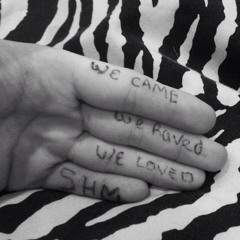 WE CAME
WE RAVED
WE LOVED
SHM